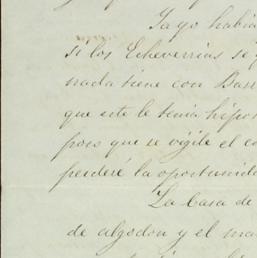 Ya yo habia
si los Echeverrias se
nada tiene con Bas
que este le tenia hipo
poco que se vigile el c
perderé la oportunida
La Casa de
de algodon y el ma